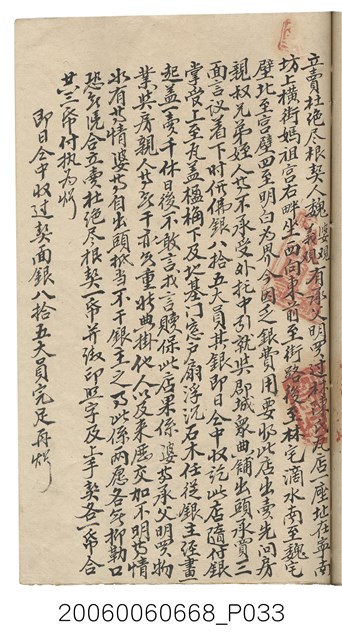 立賣杜絕尽根契人魏婆観義観有承父明買過林陳瓦店一座址在寧南
坊上橫街媽祖宮右畔坐西向東前至街路後至林宅滴水南至魏宅
壁北至宮壁四至明白為界今因乏銀費用要將此店出賣先问房
親叔兄弟姪人等不承受外托中引就與郎城鼻曲舖出頭承買三
面言议着下時価佛銀八十五大員其銀即日仝中收訖此店隨付銀
主掌管上至瓦盖楹桷下及地基門窓戸扇浮沉石木任從銀主經畫
起盖一賣千休日後不敢言找言贖保此店果係婆等承父明買物
業與房親人等無干亦無重張典掛他人以及来歷交加不明等情
如有等情婆等自出頭抵当不干銀主之事此係两愿各無抑勒口
恐無凴合立賣杜絕尽根契一帋并繳印照字及上手契各一帋合
共三帋付执為炤
即日仝中收过契面銀八十五大員完足再炤
20060060668_P033